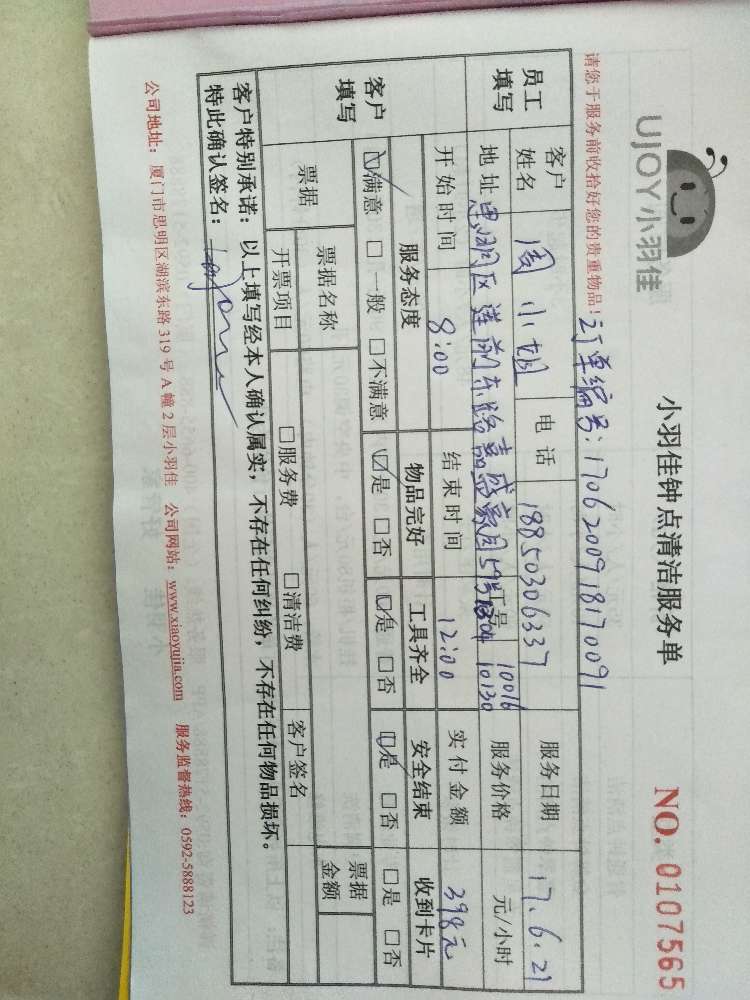 UJOY小羽佳
小羽佳钟点清洁服务单
NO. 0107565
请您于服务前收拾好您的贵重物品！
订单编号：1706200918170091
员工填写
客户姓名 周小姐 电话 18850306337 服务日期 17.6.21
地址 思明区莲前东路嘉盛豪园 工号 10016 10130 服务价格 元/小时
开始时间 8:00 结束时间 12:00 实付金额 398元
客户填写
服务态度 物品完好 工具齐全 安全结束 收到卡片
☑满意 □一般 □不满意 ☑是 □否 ☑是 □否 ☑是 □否 □是 □否
票据 票据名称 票据金额
开票项目 □服务费 □清洁费 客户签名
客户特别承诺：以上填写经本人确认属实，不存在任何纠纷，不存在任何物品损坏。
特此确认签名：
公司地址：厦门市思明区湖滨东路 319 号 A 幢 2 层小羽佳 公司网站：www.xiaoyujia.com 服务监督热线：0592-5888123